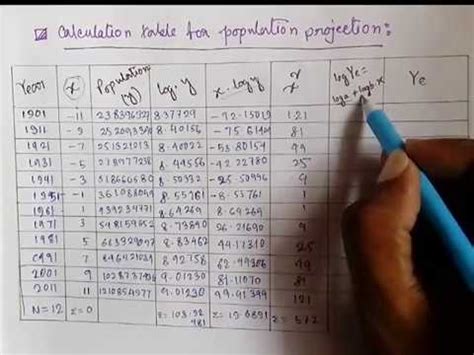 Calculation table for population projection:
Year x Population (y) log y x.log y x² log Ye = log a + log b.x Ye
1901 -11 238396327 8.37729 -92.15019 121
1911 -9 252093390 8.40156 -75.61404 81
1921 -7 251321213 8.40022 -53.80154 49
1931 -5 278977238 8.44556 -42.22780 25
1941 -3 318660580 8.50332 -25.50996 9
1951 -1 361088090 8.55761 -8.53761 1
1961 1 439234771 8.64269 8.64269 1
1971 3 548159652 8.73896 26.21690 9
1981 5 683329097 8.83462 44.17310 25
1991 7 8.92758 62.49306 49
2001 9 1028737436 9.01230 81.11070 81
2011 11 1210854977 9.01230 99.91399 121
N=12 Σ=0 Σ=103.92 481 Σ=12.6891 Σ=572